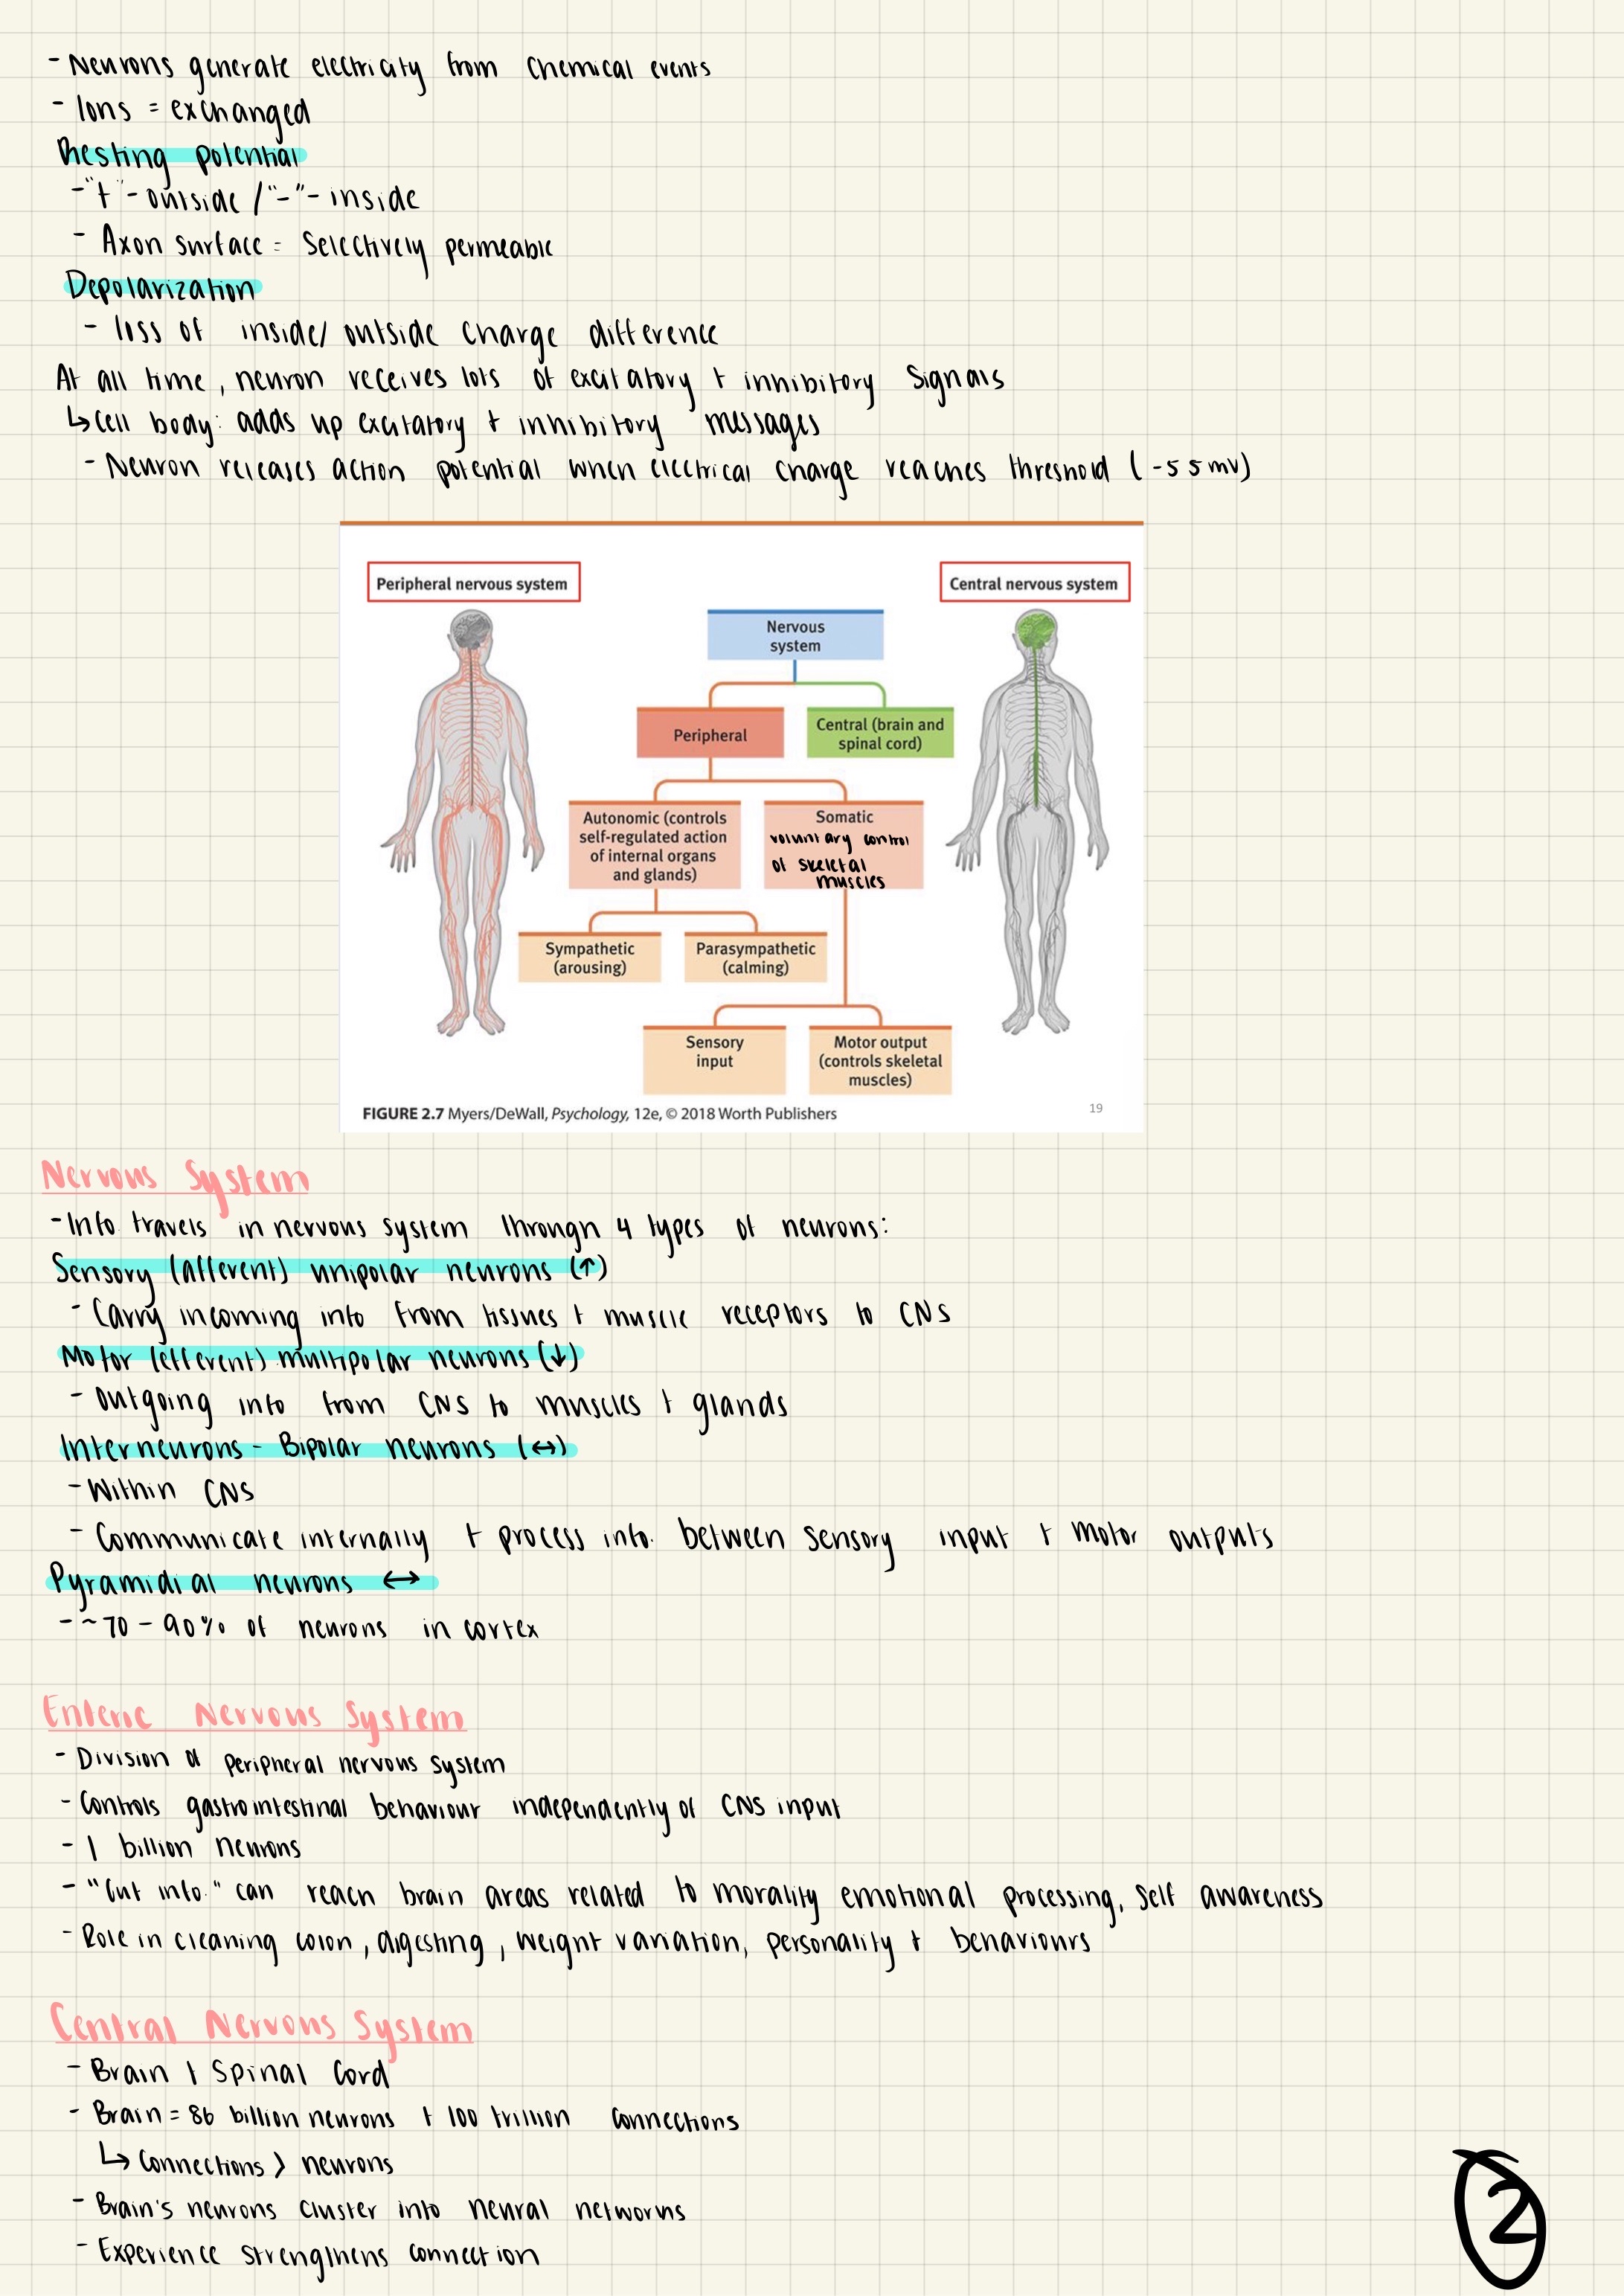 - Neurons generate electricity from chemical events
- Ions = exchanged
Resting potential
- "+" - outside / "-" - inside
- Axon surface = Selectively permeable
Depolarization
- loss of inside/outside charge difference
At all time, neuron receives lots of excitatory + inhibitory signals
↳ Cell body: adds up excitatory + inhibitory messages
- Neuron releases action potential when electrical charge reaches threshold (-55mv)
Peripheral nervous system
Central nervous system
Nervous
system
Peripheral
Central (brain and
spinal cord)
Autonomic (controls
self-regulated action
of internal organs
and glands)
Somatic
voluntary control
of skeletal
muscles
Sympathetic
(arousing)
Parasympathetic
(calming)
Sensory
input
Motor output
(controls skeletal
muscles)
FIGURE 2.7 Myers/DeWall, Psychology, 12e, © 2018 Worth Publishers
19
Nervous System
- Info. travels in nervous system through 4 types of neurons:
Sensory (afferent) unipolar neurons (↑)
- Carry incoming info from tissues + muscle receptors to CNS
Motor (efferent) multipolar neurons (↓)
- Outgoing info from CNS to muscles + glands
Interneurons - Bipolar neurons (↔)
- Within CNS
- Communicate internally + process info. between sensory input + motor outputs
Pyramidial neurons ↔
- ~70 - 90% of neurons in cortex
Enteric Nervous System
- Division of peripheral nervous system
- Controls gastrointestinal behaviour independently of CNS input
- 1 billion neurons
- "Gut info." can reach brain areas related to morality emotional processing, self awareness
- Role in cleaning colon, digesting, weight variation, personality + behaviours
Central Nervous System
- Brain + Spinal Cord
- Brain = 86 billion neurons + 100 trillion connections
↳ Connections > neurons
- Brain's neurons cluster into neural networks
- Experience strengthens connection
2